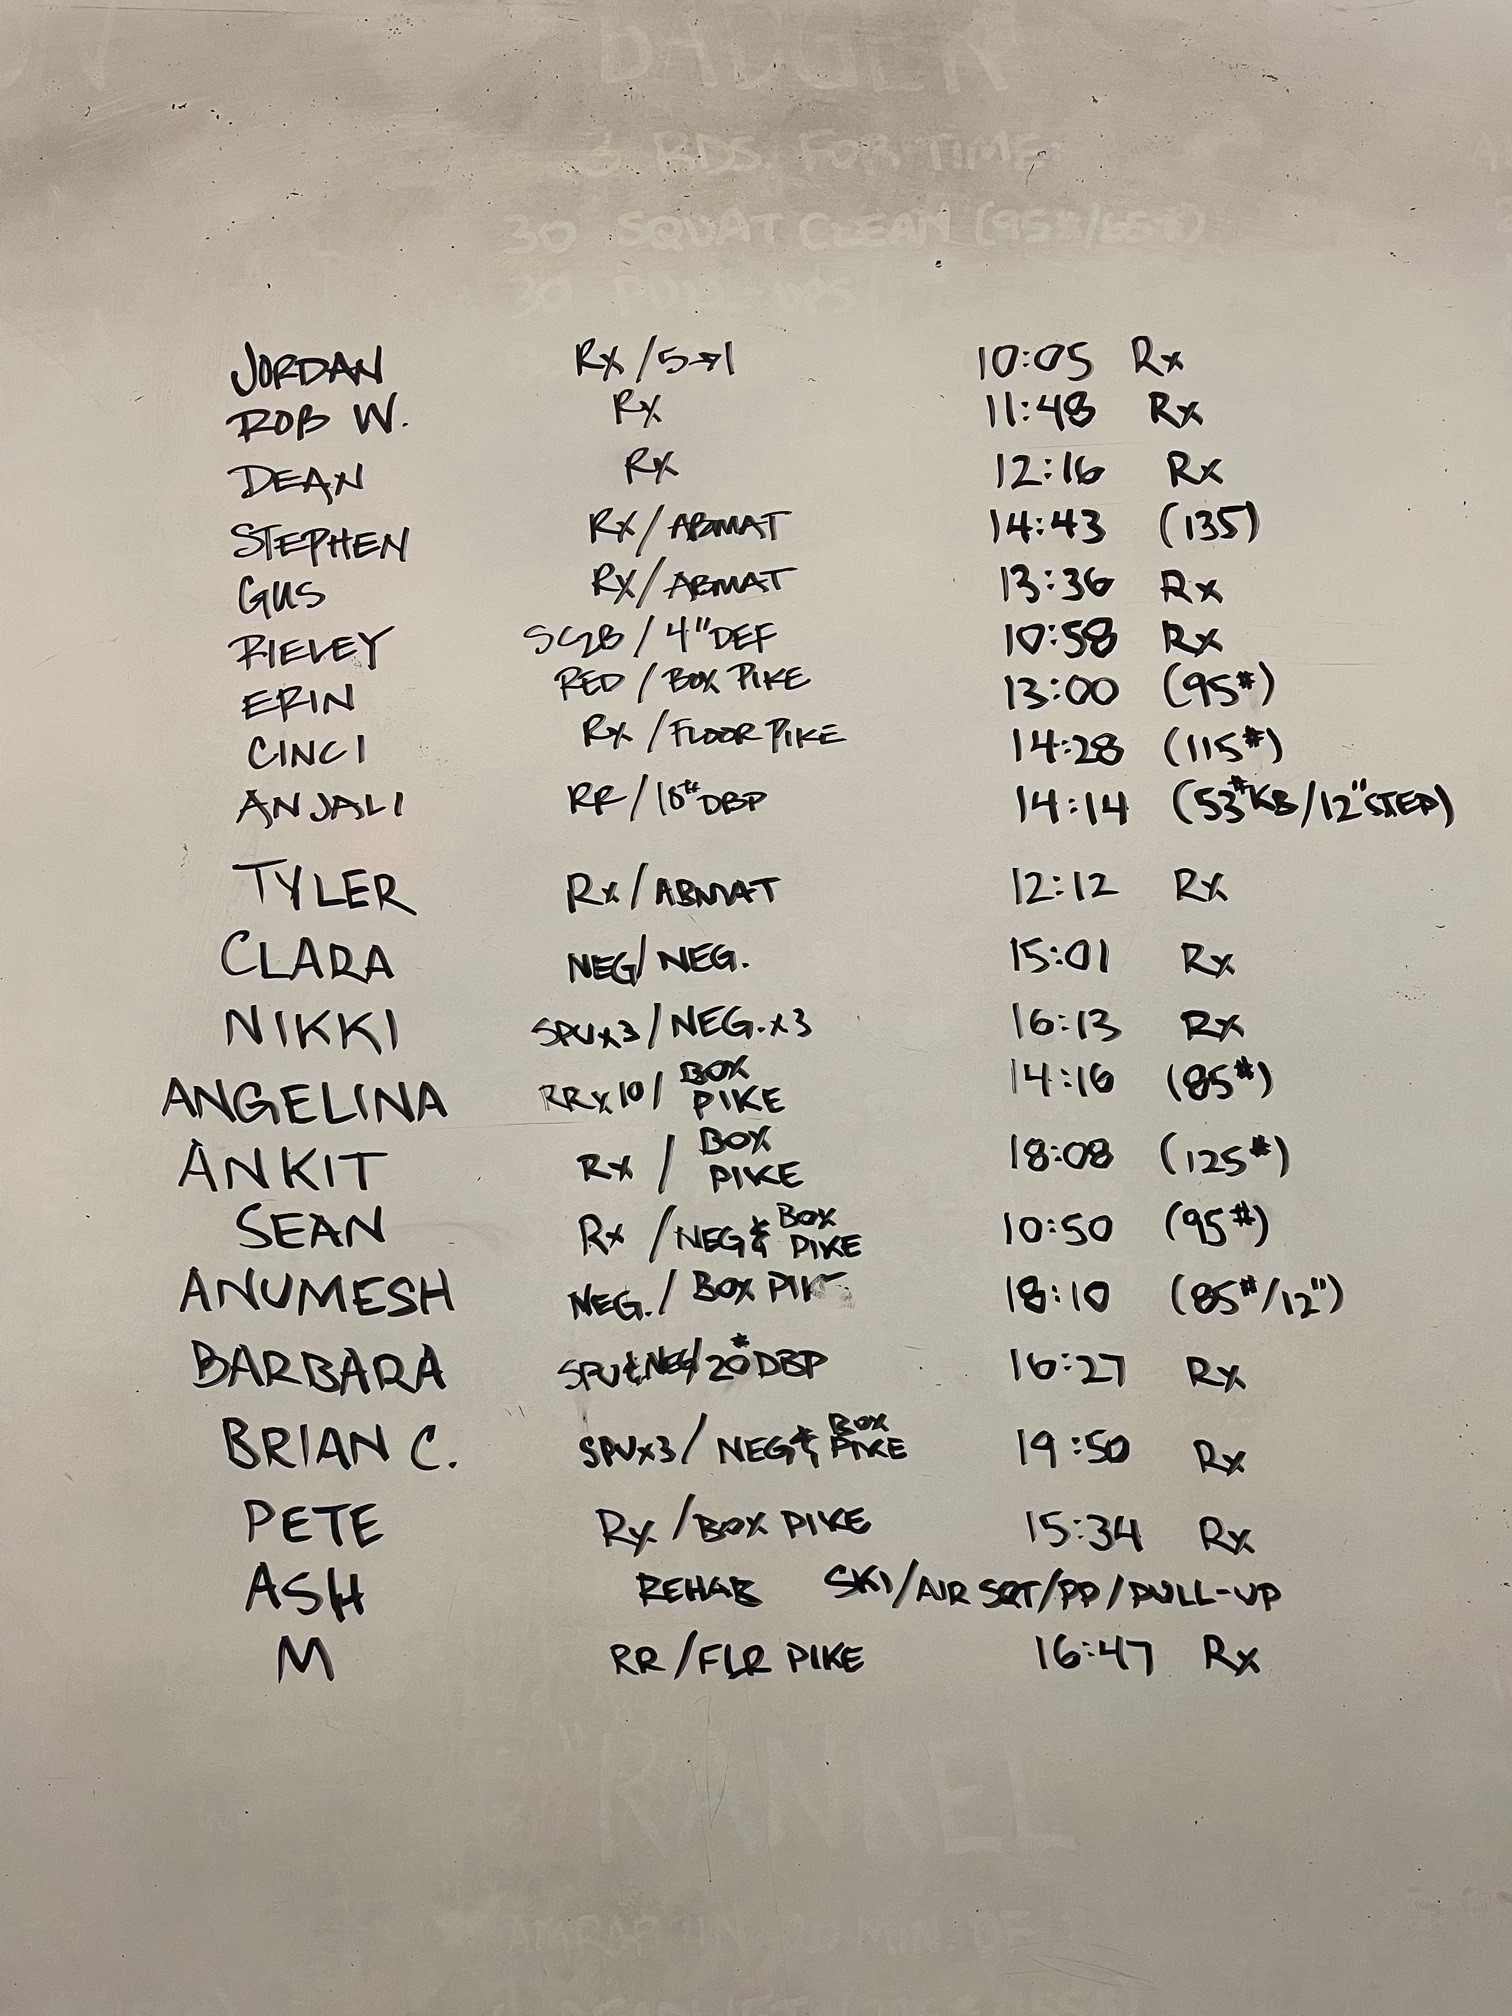 BADGER
3 RDS. FOR TIME:
30 SQUAT CLEAN (95#/65#)
30 PULL-UPS
JORDAN Rx/5→1 10:05 Rx
ROB W. Rx 11:48 Rx
DEAN Rx 12:16 Rx
STEPHEN Rx/ABMAT 14:43 (135)
GUS Rx/ABMAT 13:36 Rx
RIELEY / 4" DEF 10:58 Rx
ERIN RED / BOX PIKE 13:00 (95#)
CINCI Rx / FLOOR PIKE 14:28 (115#)
ANJALI RR/10# DBP 14:14 (53#KB/12" STEP)
TYLER Rx/ABMAT 12:12 Rx
CLARA NEG/NEG. 15:01 Rx
NIKKI SPUx3/NEG.x3 16:13 Rx
ANGELINA RRx10/ BOX PIKE 14:16 (85#)
ANKIT Rx / BOX PIKE 18:08 (125#)
SEAN Rx /NEG & BOX PIKE 10:50 (95#)
ANUMESH NEG./ BOX PIK 18:10 (85#/12")
BARBARA SPU & NEG/20# DBP 16:27 Rx
BRIAN C. SPUx3/ NEG & BOX PIKE 19:50 Rx
PETE Rx /BOX PIKE 15:34 Rx
ASH REHAB SKI/AIR SQT/PP/PULL-UP
M RR/FLR PIKE 16:47 Rx
"RANKEL
AMRAP IN 20 MIN. OF: